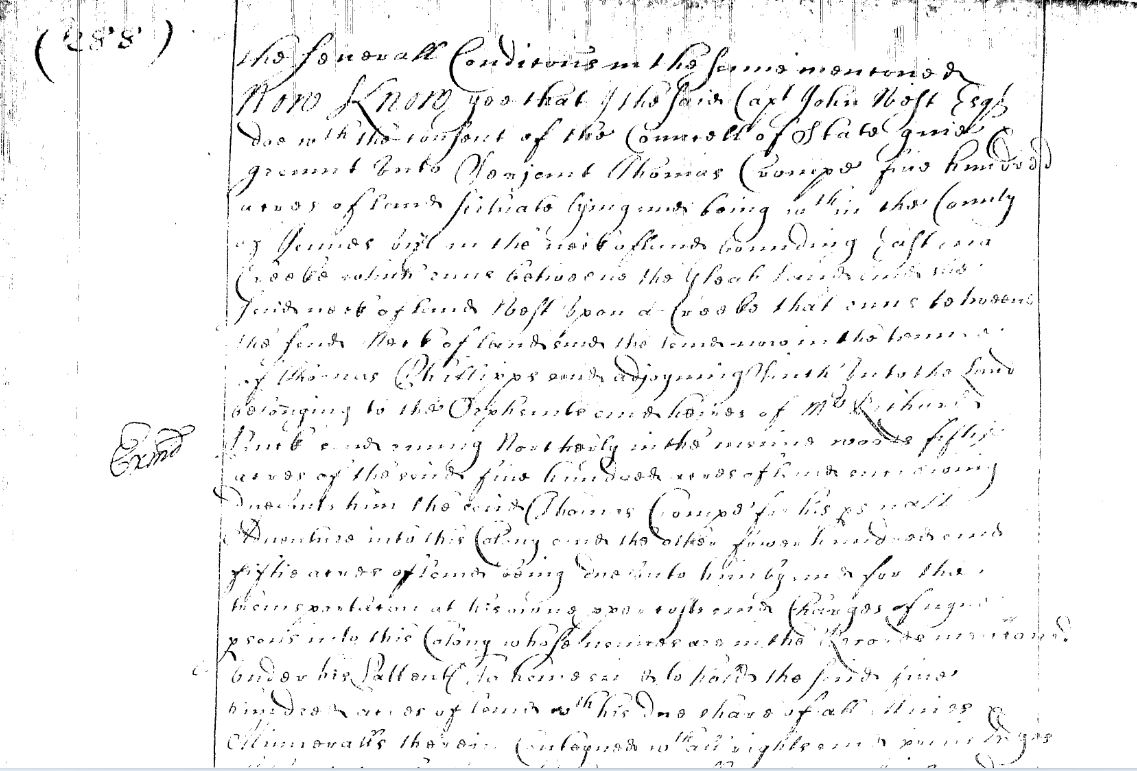 (288)
the severall Conditons in the same mentioned
Now Know yee that I the said Capt John West Esqr
doe wth the consent of the Councell of State give &
graunt unto Serjeant Thomas Crompe five hundred
acres of land situate lying and being wth in the County
of James Citty in the neck of land bounding East
Creeke which runs betweene the Gleab land and the
said neck of land West upon a Creeke that runs betweene
the said Neck of land and the land now in the tenure
of Thomas Phillipps and adjoyning South unto the Land
belonging to the Orphants and heires of Mr Richard
Exmd
Buck and runing Northerly in the maine woods fiftie
acres of the said five hundred acres of land
due unto him the said Thomas Crompe for his psonall
Adventure into this Colony and the other fower hundred and
fiftie acres of land being due unto him by and for the
transportaton at his owne pper costs and Charges of nyne
psons into this Colony whose names are in the Records mentoned
under this Pattent To have and to hold the said five
hundred acres of land wth his due share of all Mines &
Mineralls therein Conteyned wth all rights and priviledges